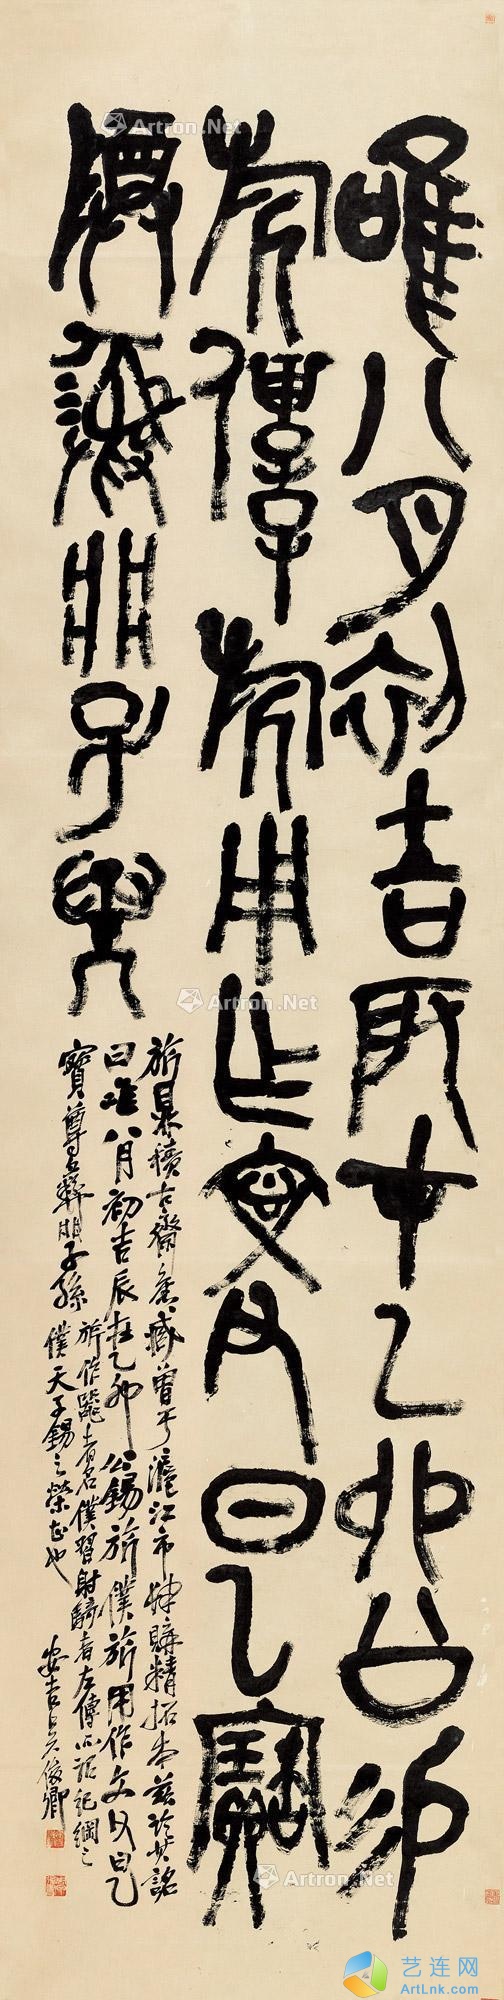 唯八月初吉辰在乙卯公易
旅僕旅用作文父日乙寶
尊彝子孫
旅積古齋舊藏曾于滬江市肆購精拓本茲臨其銘
曰唯八月初吉辰在乙卯公錫旅僕旅用作文父日乙
寶尊彝子孫
旅作器者名僕習射騎者左傳所謂紀綱之
僕天子錫之榮志也
安吉吳俊卿
Artron.Net
Artron.Net
Artron.Net
Artron.Net
Artron.Net
Artron.Net
艺连网
ArtLnk.com